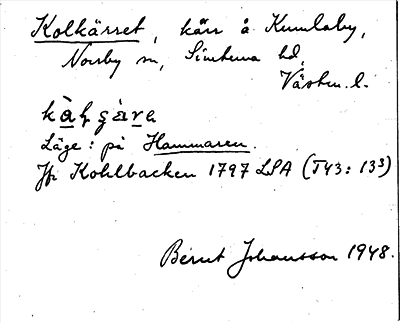 Kolkärret, kärr å Kumlaby,
Norrby sn, Simtuna hd,
Västm. l.
Läge: på Hammaren.
Jfr Kohlbacken 1797 LSA (T43: 13³)
Bernt Johansson 1948.